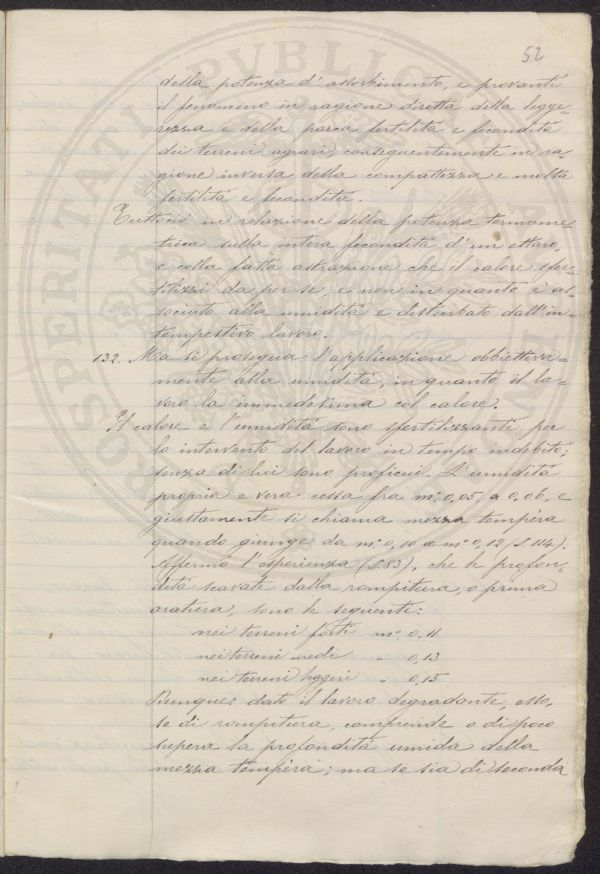 52
della potenza d'assorbimento, e provanti
il fenomeno in ragione diretta della legge=
rezza e della parca fertilità e fecondità
dei terreni agrari, conseguentemente in ra=
gione inversa della compattezza e molta
fertilità e fecondità.
Tuttociò in relazione della potenza termome=
trica sulla intera fecondità d'un ettaro,
e colla fatta astrazione che il calore sfer=
tilizzi da per se, e non in quanto è as=
sociato alla umidità e disturbato dall'in=
tempestivo lavoro.
132. Ma si prosegua l'applicazione obbiettiva=
mente alla umidità, in quanto il la=
voro la immedesima col calore.
Il calore e l'umidità sono sfertilizzanti per
lo intervento del lavoro in tempo indebito;
senza di lui sono proficui. L'umidità
propria e vera cessa fra m.° 0,05, a 0,06, e
giustamente si chiama mezza tempèra
quando giunge da m.° 0,10 a m.° 0,12 (§.114).
Affermò l'esperienza (§.83), che le profon=
dità scavate dalla rompitura, o prima
aratura, sono le seguenti:
nei terreni forti m.° 0,11
nei terreni medi " 0,13
nei terreni leggeri " 0,15
Dunque: dato il lavoro degradante, esso,
se di rompitura, comprende o di poco
supera la profondità umida della
mezza tempèra; ma se sia di seconda
PROSPERITATI PVBLICAE